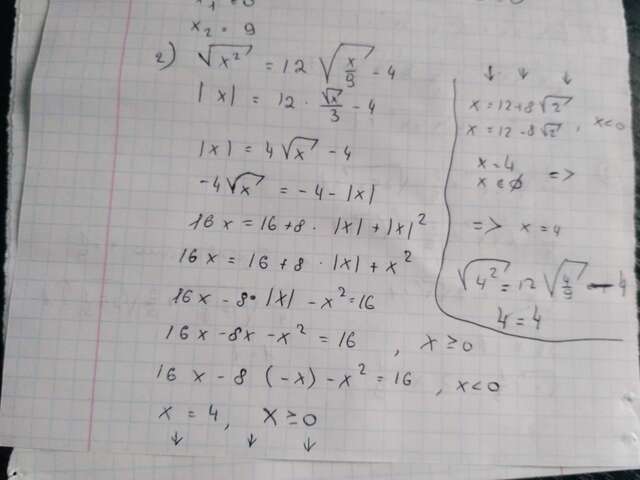 x₁ = 0
x₂ = 9
2) √x² = 12 √(x/9) - 4
|x| = 12 · √x/3 - 4
|x| = 4√x - 4
-4√x = -4 - |x|
16x = 16 + 8 · |x| + |x|²
16x = 16 + 8 · |x| + x²
16x - 8·|x| - x² = 16
16x - 8x - x² = 16 , x ≥ 0
16x - 8(-x) - x² = 16 , x < 0
x = 4, x ≥ 0
↓ ↓ ↓
↓ ↓ ↓
x = 12 + 8√2
x = 12 - 8√2 , x < 0
x = 4
x ∈ ∅ =>
=> x = 4
√4² = 12 √(4/9) - 4
4 = 4